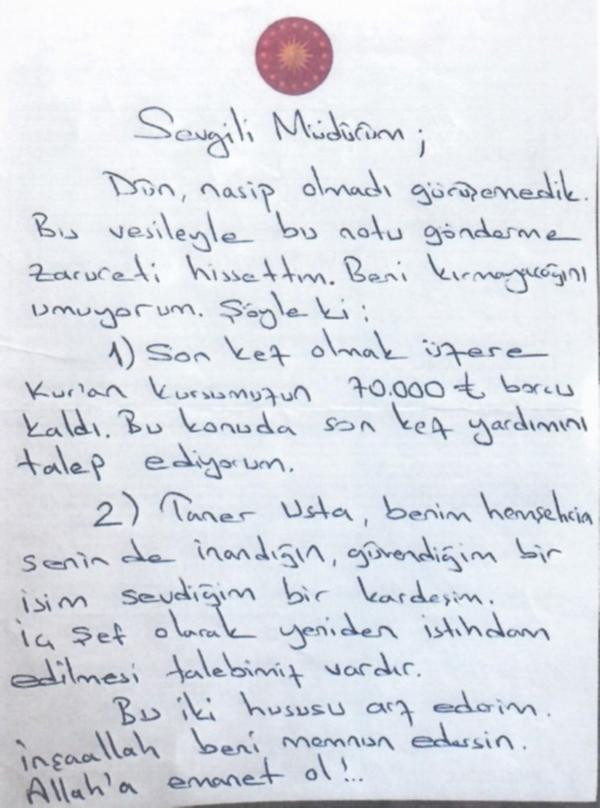 Sevgili Müdürüm;
Dün, nasip olmadı görüşemedik.
Bu vesileyle bu notu gönderme
zarureti hissettim. Beni kırmayacağını
umuyorum. Şöyle ki:
1) Son kez olmak üzere
Kur'an kursumuzun 70.000 ₺ borcu
kaldı. Bu konuda son kez yardımını
talep ediyorum.
2) Taner Usta, benim hemşehrim
senin de inandığın, güvendiğim bir
isim sevdiğim bir kardeşim.
Şef olarak yeniden istihdam
edilmesi talebimiz vardır.
Bu iki hususu arz ederim.
İnşaallah beni memnun edersin.
Allah'a emanet ol!..